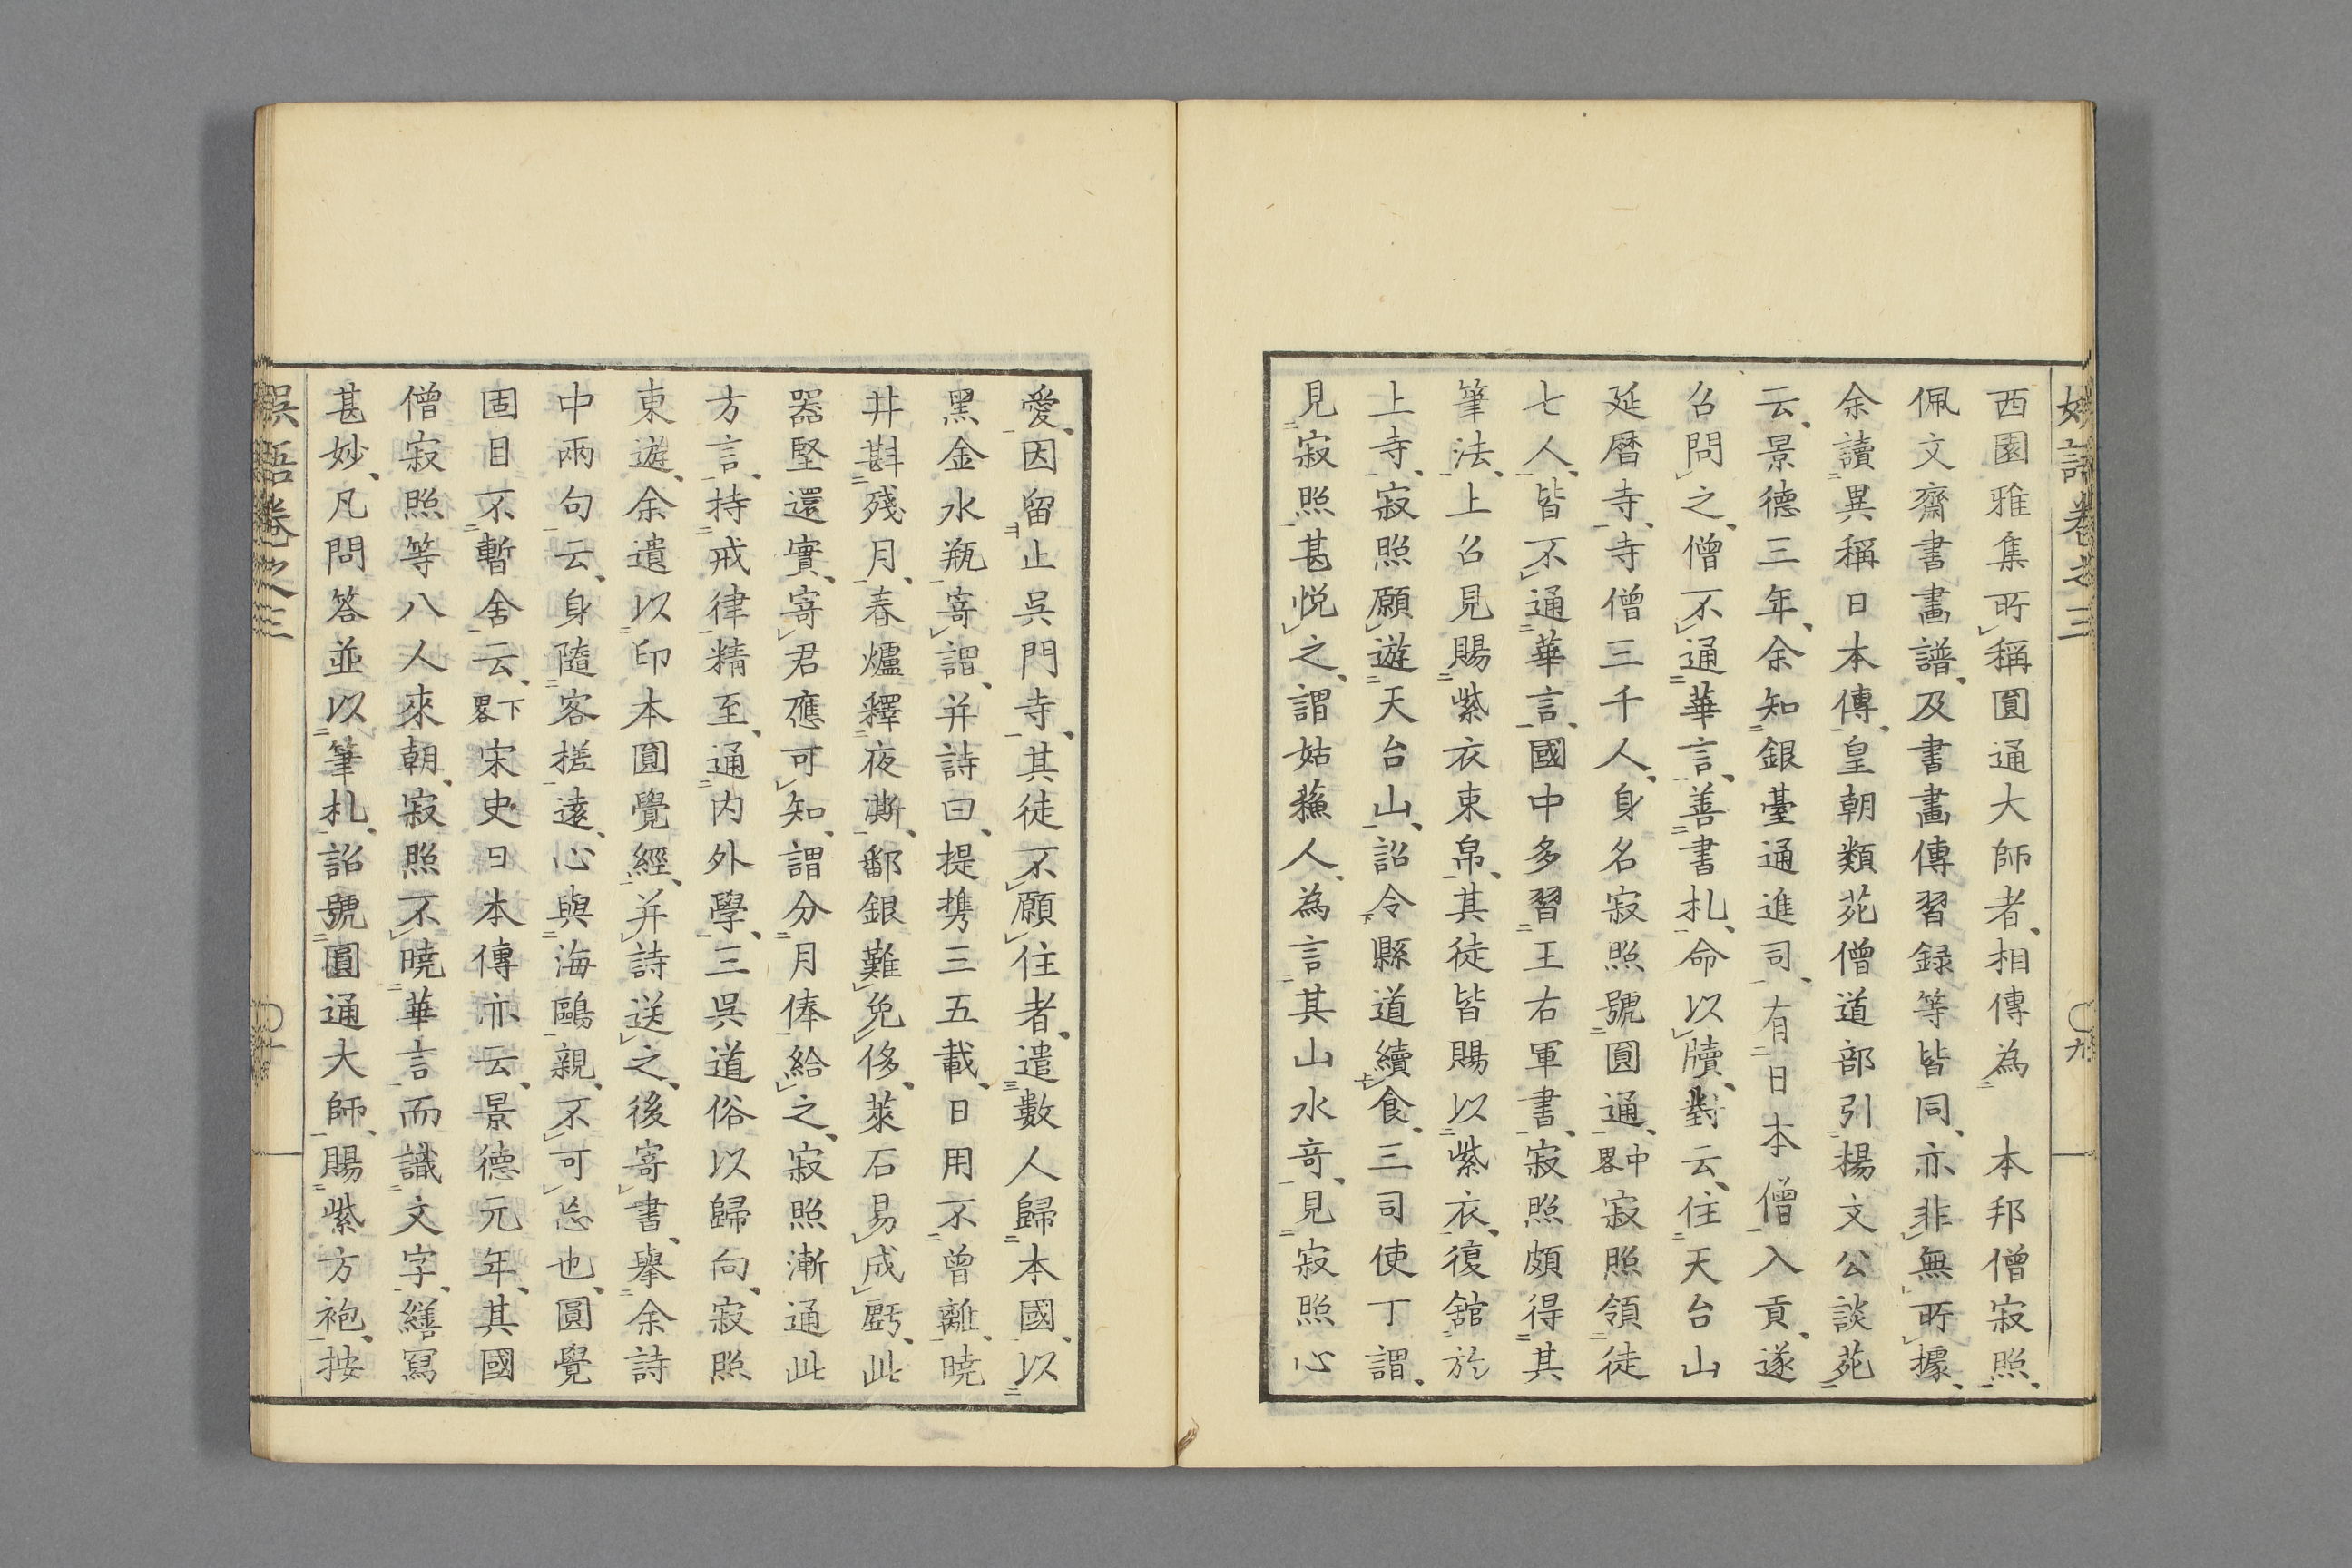 西園雅集所稱圓通大師者、相傳為　本邦僧寂照、
佩文齋書畫譜、及書畫傳習録等皆同、亦非無所據、
余讀異稱日本傳、皇朝類苑僧道部引楊文公談苑
云、景德三年、余知銀臺通進司、有日本僧入貢、遂
召問之、僧不通華言、善書札、命以牘對云、住天台山
延暦寺、寺僧三千人、身名寂照號圓通、中畧寂照領徒
七人、皆不通華言、國中多習王右軍書、寂照頗得其
筆法、上召見賜紫衣束帛、其徒皆賜以紫衣、復舘於
上寺、寂照願遊天台山、詔令縣道續食、三司使丁謂、
見寂照甚悦之、謂姑蘓人、為言其山水奇、見寂照心
愛、因留止吳門寺、其徒不願住者、遣數人歸本國、以
黑金水瓶寄謂、并詩曰、提携三五載、日用不曾離、曉
井斟殘月、春爐釋夜澌、鄱銀難免侈、萊石易成虧、此
器堅還實、寄君應可知、謂分月俸給之、寂照漸通此
方言、持戒律精至、通内外學、三吳道俗以歸向、寂照
東遊、余遺以印本圓覺經、并詩送之、後寄書、擧余詩
中兩句云、身隨客槎遠、心與海鷗親、不可忘也、圓覺
固目不暫舍云、下畧宋史日本傳亦云、景德元年、其國
僧寂照等八人來朝、寂照不曉華言、而識文字、繕寫
甚妙、凡問答並以筆札、詔號圓通大師、賜紫方袍、按
卷之三